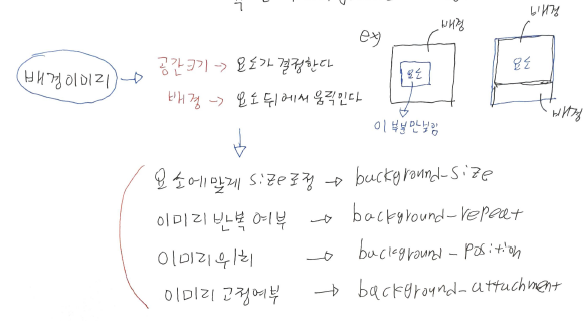 ex)
배경
배경
배경이미지 → 공간크기 → 요소가 결정한다
배경 → 요소뒤에서 움직인다
요소
요소
배경
이 부분만보임
요소에맞게 size조정 → background-size
이미지 반복 여부 → background-repeat
이미지위치 → background-position
이미지 고정여부 → background-attachment